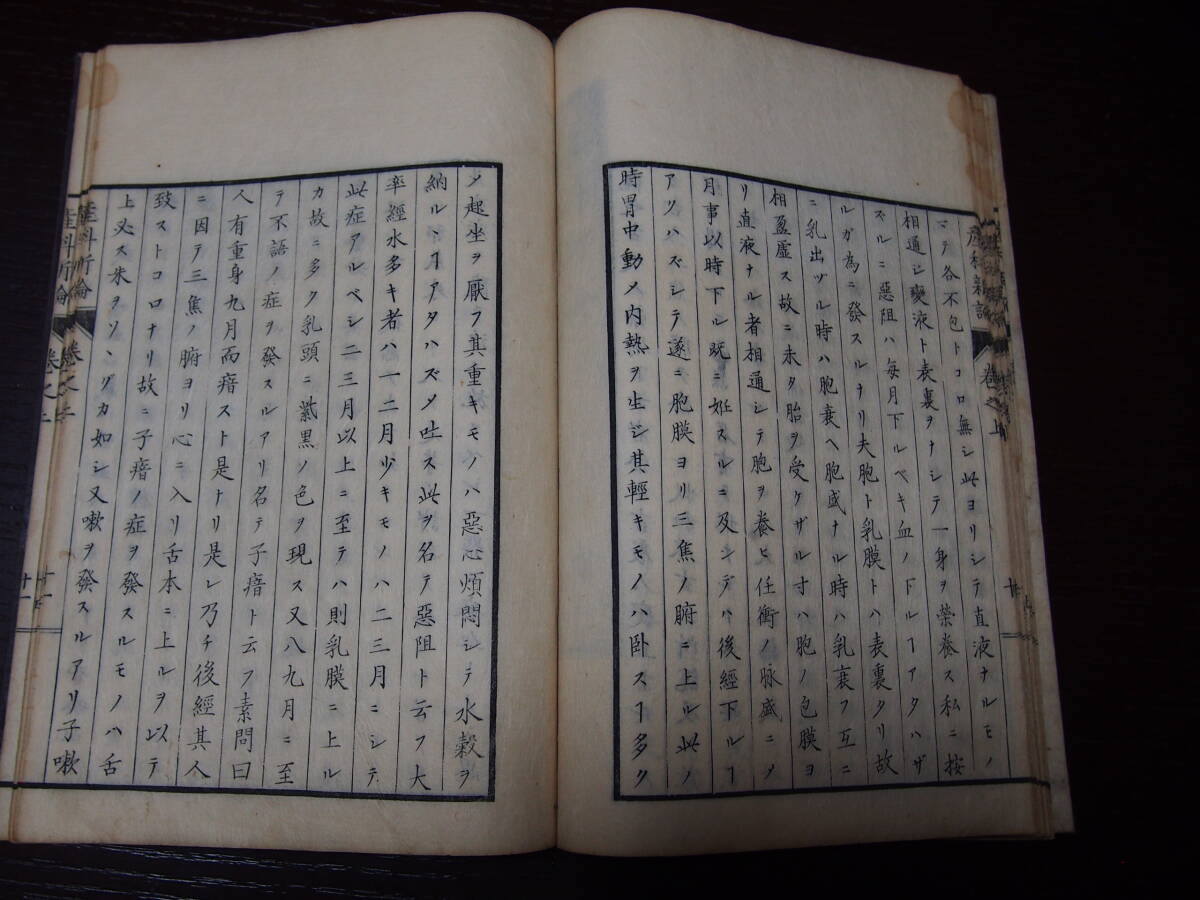 産科新論
巻之上
ニテ各不包トコロ無シ此ヨリシテ直液ナルモノ
相通シ變液ト表裏ヲナシテ一身ヲ榮養ス私ニ按
ズルニ惡阻ハ毎月下ルベキ血ノ下ルヿアタハザ
ルガ為ニ發スルナリ夫胞ト乳膜トハ表裏タリ故
ニ乳出ヅル時ハ胞衰ヘ胞盛ナル時ハ乳衰フ互ニ
相盈虚ス故ニ未タ胎ヲ受ケザル寸ハ胞ノ包膜ヨ
リ直液ナル者相通シテ胞ヲ養ヒ任衝ノ脉盛ニメ
月事以時下ル既ニ姙スルニ及ンデハ後經下ルヿ
アタハズシテ遂ニ胞膜ヨリ三焦ノ腑ニ上ル此ノ
時胃中動メ内熱ヲ生ジ其輕キモノハ卧スヿ多ク
メ起坐ヲ厭フ其重キモノハ惡心煩悶シテ水穀ヲ
納ルヽヿアタハズメ吐ス此ヲ名テ惡阻ト云フ大
率經水多キ者ハ一二月少キモノハ二三月ニシテ
此症アルベシ二三月以上ニ至テハ則乳膜ニ上ル
カ故ニ多ク乳頭ニ紫黒ノ色ヲ現ス又八九月ニ至
テ不語ノ症ヲ發スルアリ名テ子瘖ト云フ素問曰
人有重身九月而瘖スト是トリ是レ乃チ後經其人
ニ因テ三焦ノ腑ヨリ心ニ入リ舌本ニ上ルヲ以テ
致ストコロナリ故ニ子瘖ノ症ヲ發スルモノハ舌
上必ス朱ヲソヽグカ如シ又嗽ヲ發スルアリ子嗽
産科新論
巻之上